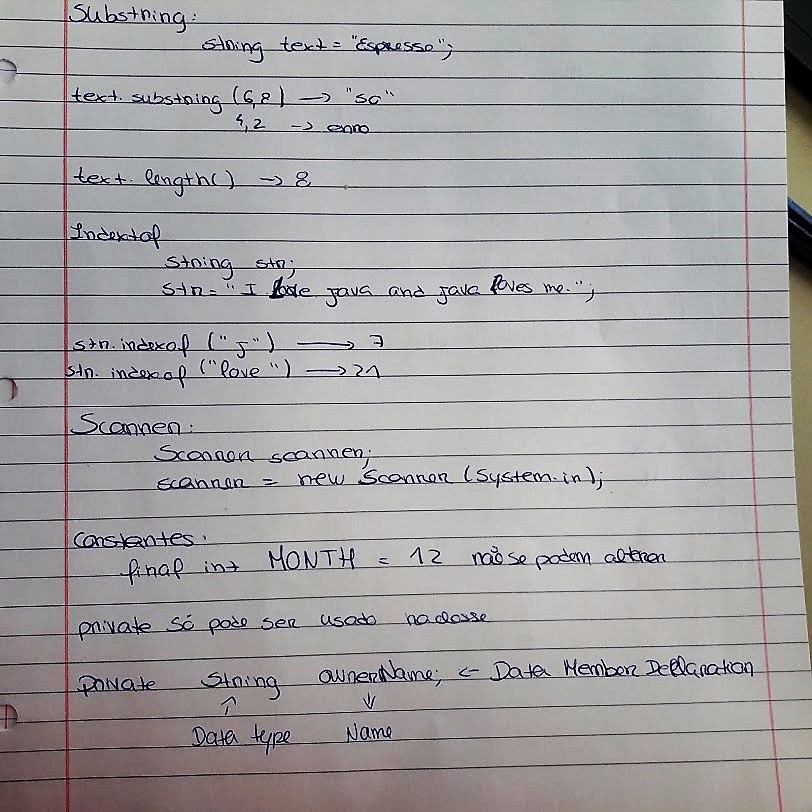 Substring:
string text = "Espresso";
text.substring (6,8) → "so"
4,2 → erro
text.length() → 8
Indexof
string str;
str = "I love java and java loves me.";
str.indexof ("j") → 7
str.indexof ("love") → 21
Scanner:
Scanner scanner;
scanner = new Scanner (System.in);
Constantes:
final int MONTH = 12 não se podem alterar
private só pode ser usado na classe
private String ownerName; ← Data Member Declaration
↑ ↓
Data type Name